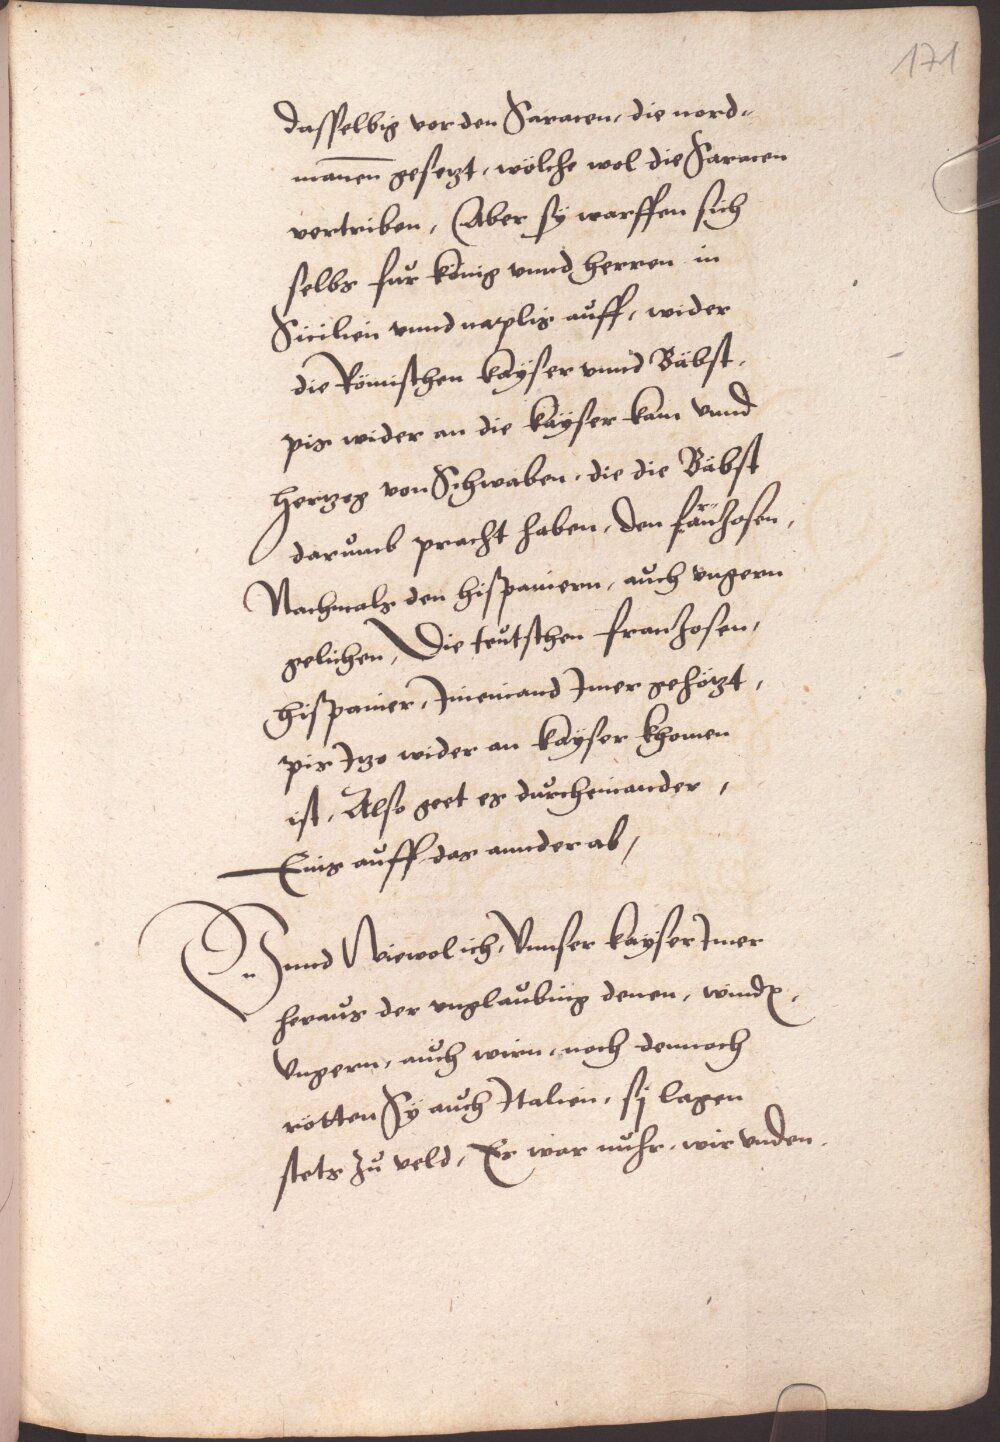 171
dasselbig vor den Saracen, die nord-
manen gesetzt, wölche wol die Saracen
vertriben, Aber sy warffen sich
selbs fur König vnnd herren in
Sicilien vnnd naplis auff, wider
die Römischen kayser vnnd Bäbst,
pis wider an die kayser kam vnnd
Hertzog von Schwaben, die die Bäbst
darumb pracht haben, den franzosen,
Nachmals den hispaniern, auch vngern
gelichen, Die teutschen franzosen,
hispanier, Ineinand Imer gehötzt,
pis Itzo wider an kayser khomen
ist, Also geet es durcheinander,
Eins auff das annder ab,
Vnnd Wiewol ich, Vnnser kayser Imer
heraus der vnglaubing denen, wind,
Vngern, auch wirn, noch dennoch
rötten Sy auch Italien, sy lagen
stets zu veld, Er war nuhr, wir vnden